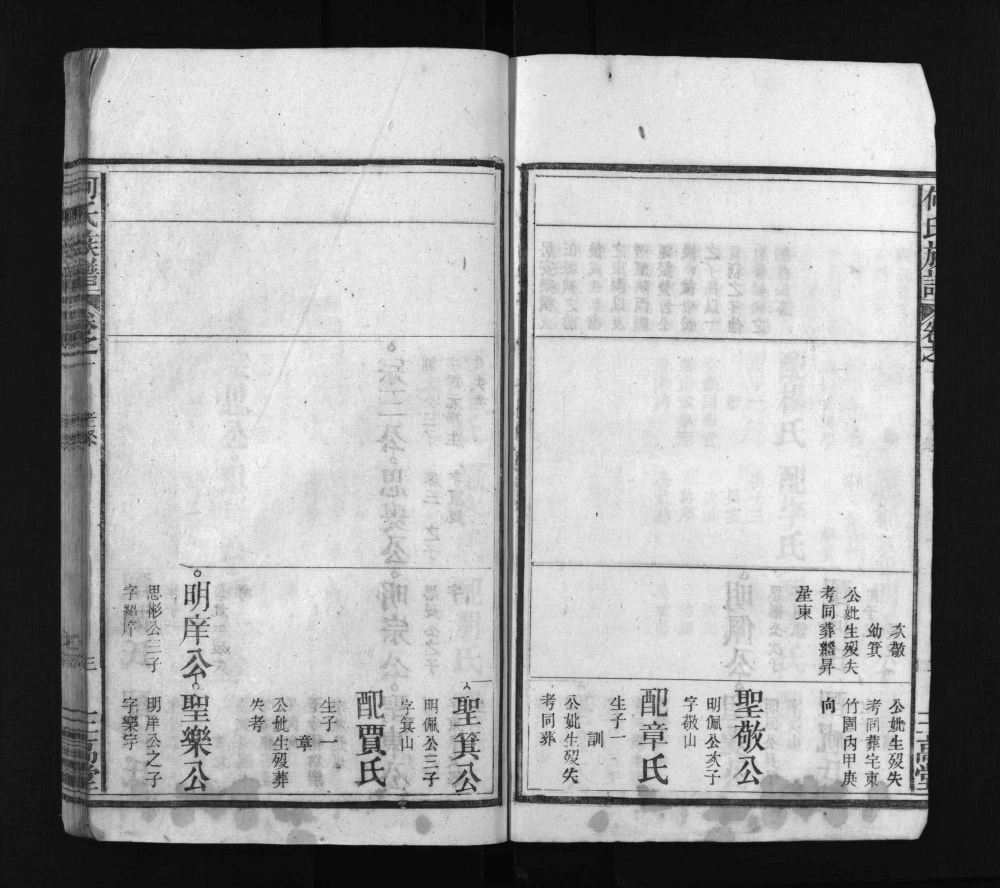 何氏族譜
卷之
三高堂
次敬
幼箕
公妣生歿失
考同葬
昇
垄東
公妣生歿失
考同葬宅東
竹園內甲庚
向
聖敬公
明佩公次子
字敬山
配章氏
生子一
訓
公妣生歿失
考同葬
聖箕公
明佩公三子
字箕山
配賈氏
生子一
章
公妣生歿葬
失考
明庠公
思彬公三子
字
聖樂公
明庠公之子
字樂宇
何氏族譜
卷之一
三